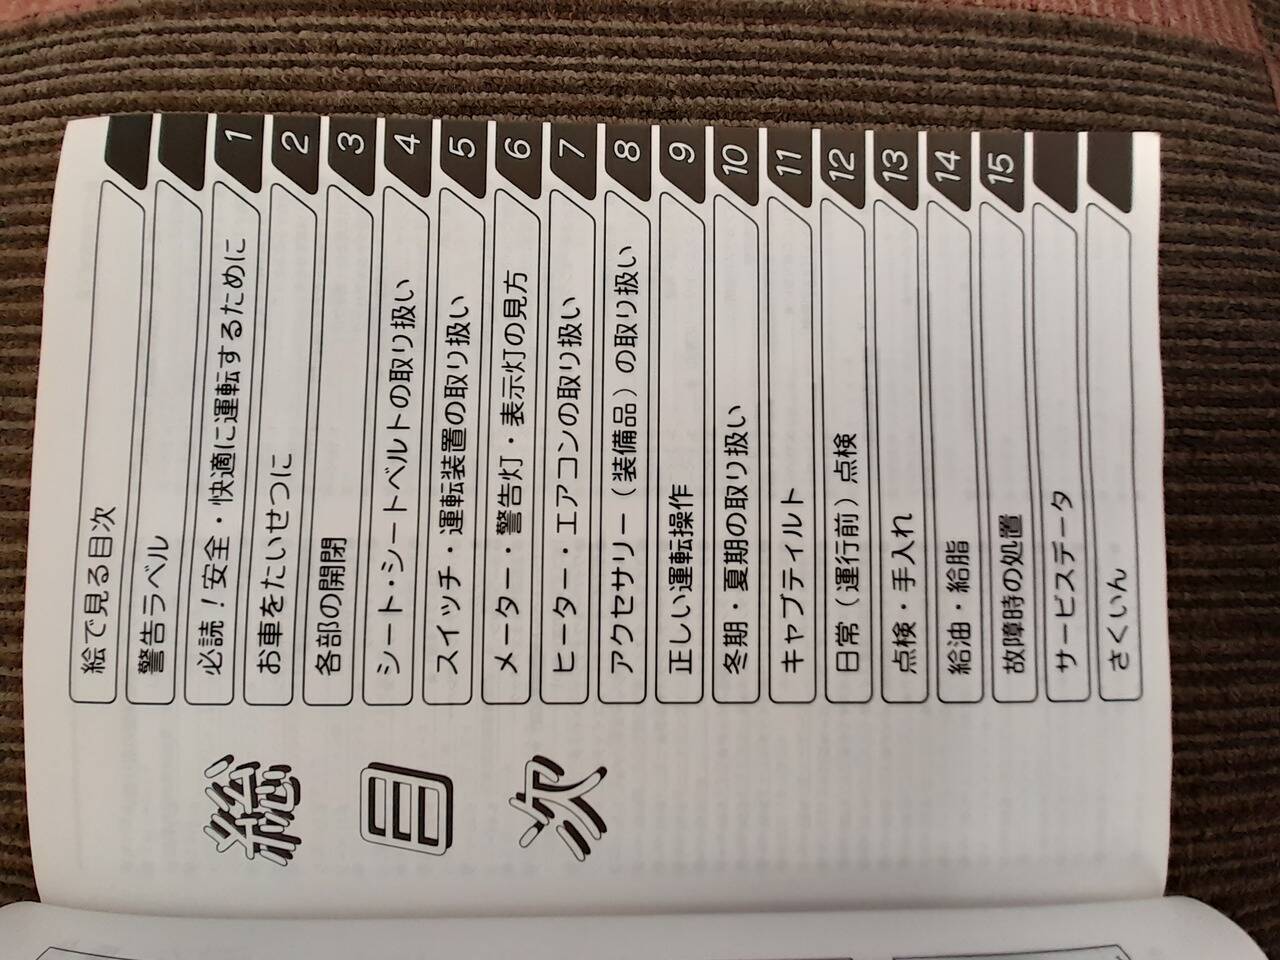 総目次
絵で見る目次
警告ラベル
必読！安全・快適に運転するために 1
お車をたいせつに 2
各部の開閉 3
シート・シートベルトの取り扱い 4
スイッチ・運転装置の取り扱い 5
メーター・警告灯・表示灯の見方 6
ヒーター・エアコンの取り扱い 7
アクセサリー（装備品）の取り扱い 8
正しい運転操作 9
冬期・夏期の取り扱い 10
キャブティルト 11
日常（運行前）点検 12
点検・手入れ 13
給油・給脂 14
故障時の処置 15
サービスデータ
さくいん